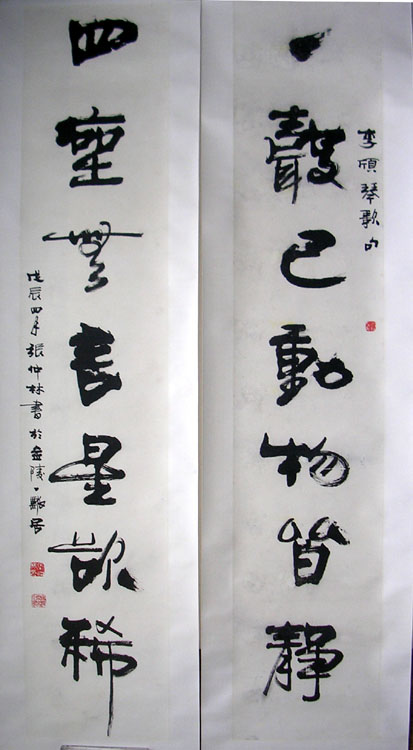 一聲已動物皆靜
李頎琴歌句
四座無言星欲稀
戊辰四月張仲林書於金陵一居